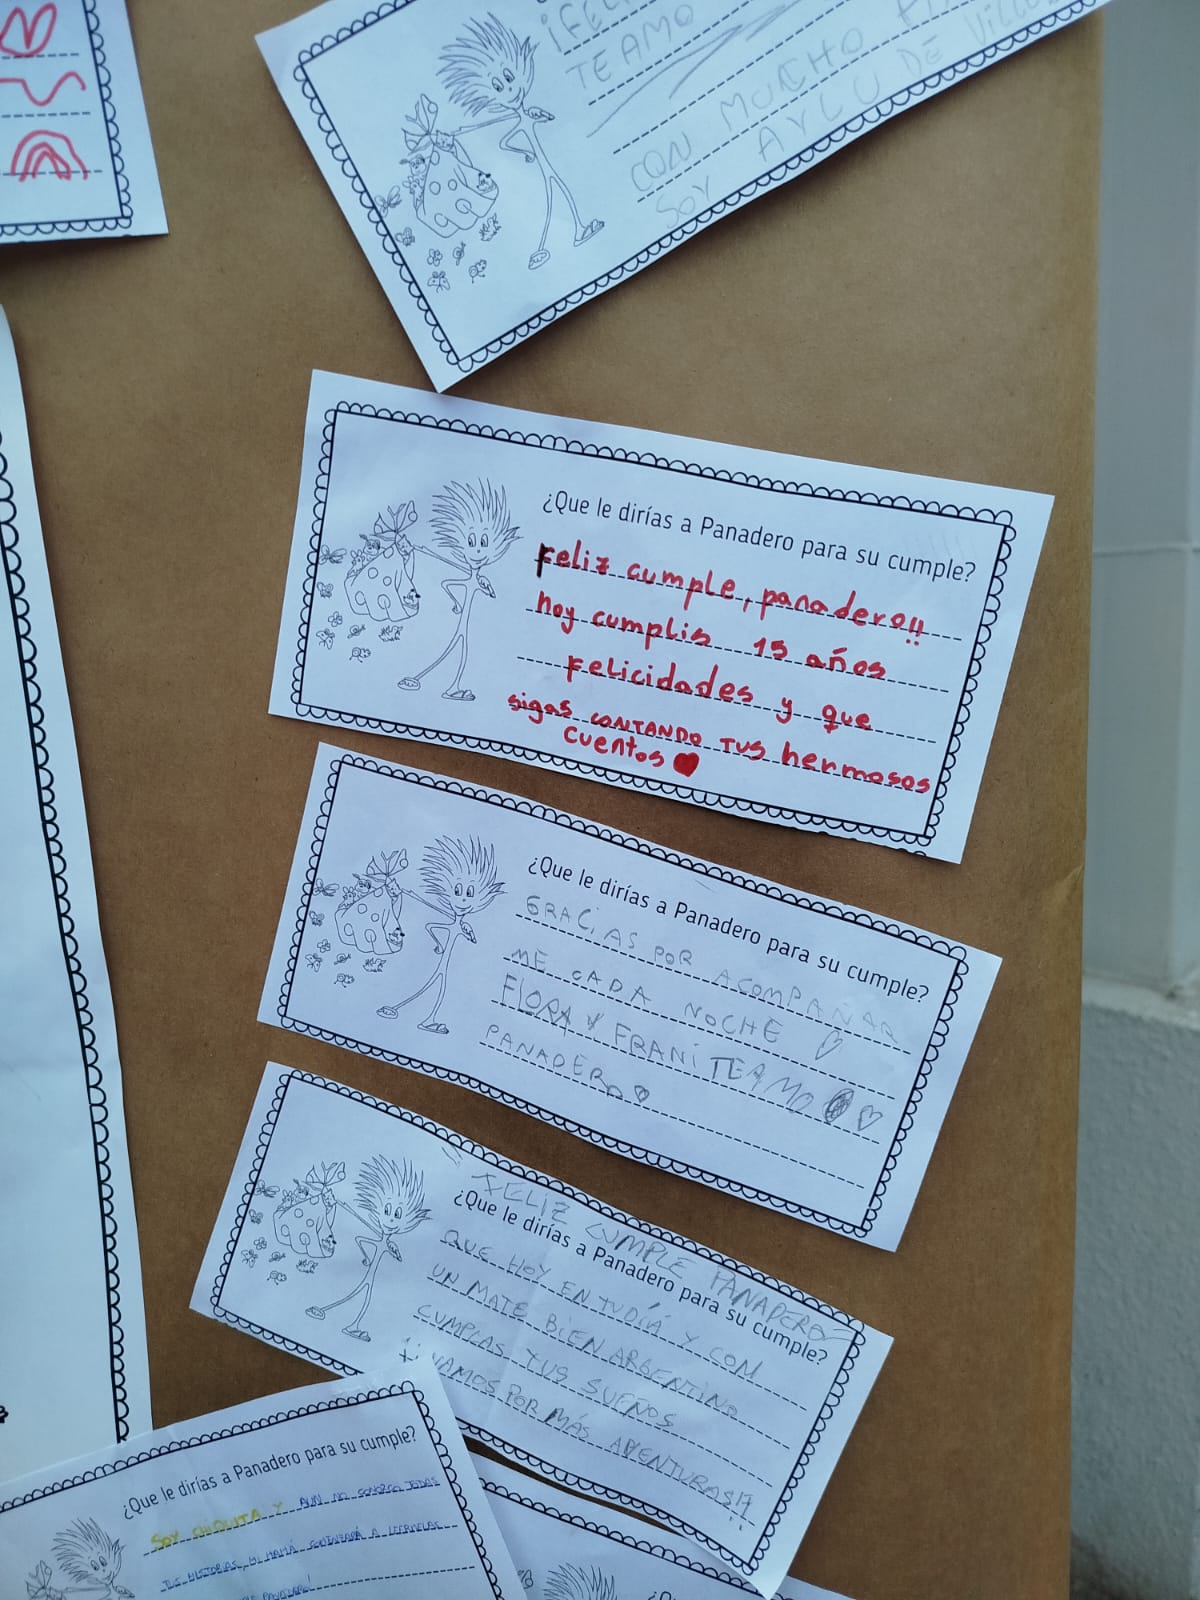 TE AMO
CON MUCHO
SOY AYLU DE
¿Que le dirías a Panadero para su cumple?
Feliz cumple, panadero!!
hoy cumplis 15 años
Felicidades y que
sigas CONTANDO TUS hermosos
cuentos
¿Que le dirías a Panadero para su cumple?
GRACIAS POR ACOMPAÑAR
ME CADA NOCHE
FLORA Y FRANI TE AMO
PANADERO
FELIZ CUMPLE PANADERO
¿Que le dirías a Panadero para su cumple?
QUE HOY EN TU DÍA Y CON
UN MATE BIEN ARGENTINO
CUMPLAS TUS SUEÑOS
VAMOS POR MÁS AVENTURAS!!
¿Que le dirías a Panadero para su cumple?
SOY CHIQUITA Y AUN NO CONOZCO TODAS
TUS HISTORIAS, MI MAMÁ COMENZARÁ A LEERMELAS
PANADERO!